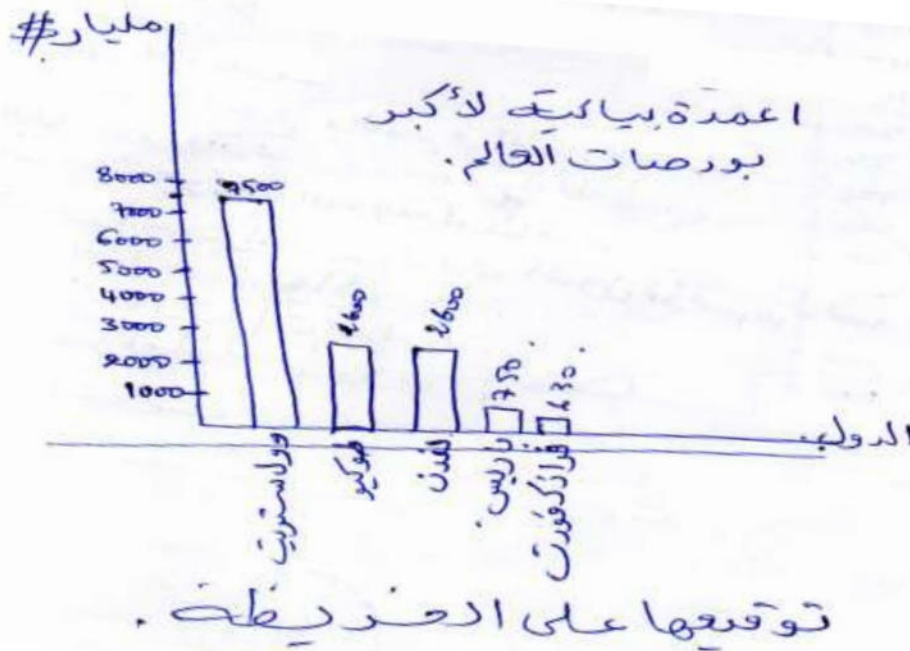 مليار #
اعمدة بيانية لأكبر
بورصات العالم.
8000
7000
6000
5000
4000
3000
2000
1000
7500
2600
2600
750
430
الدول
وول ستريت
طوكيو
لندن
باريس
فرانكفورت
توقيعها على الخريطة .